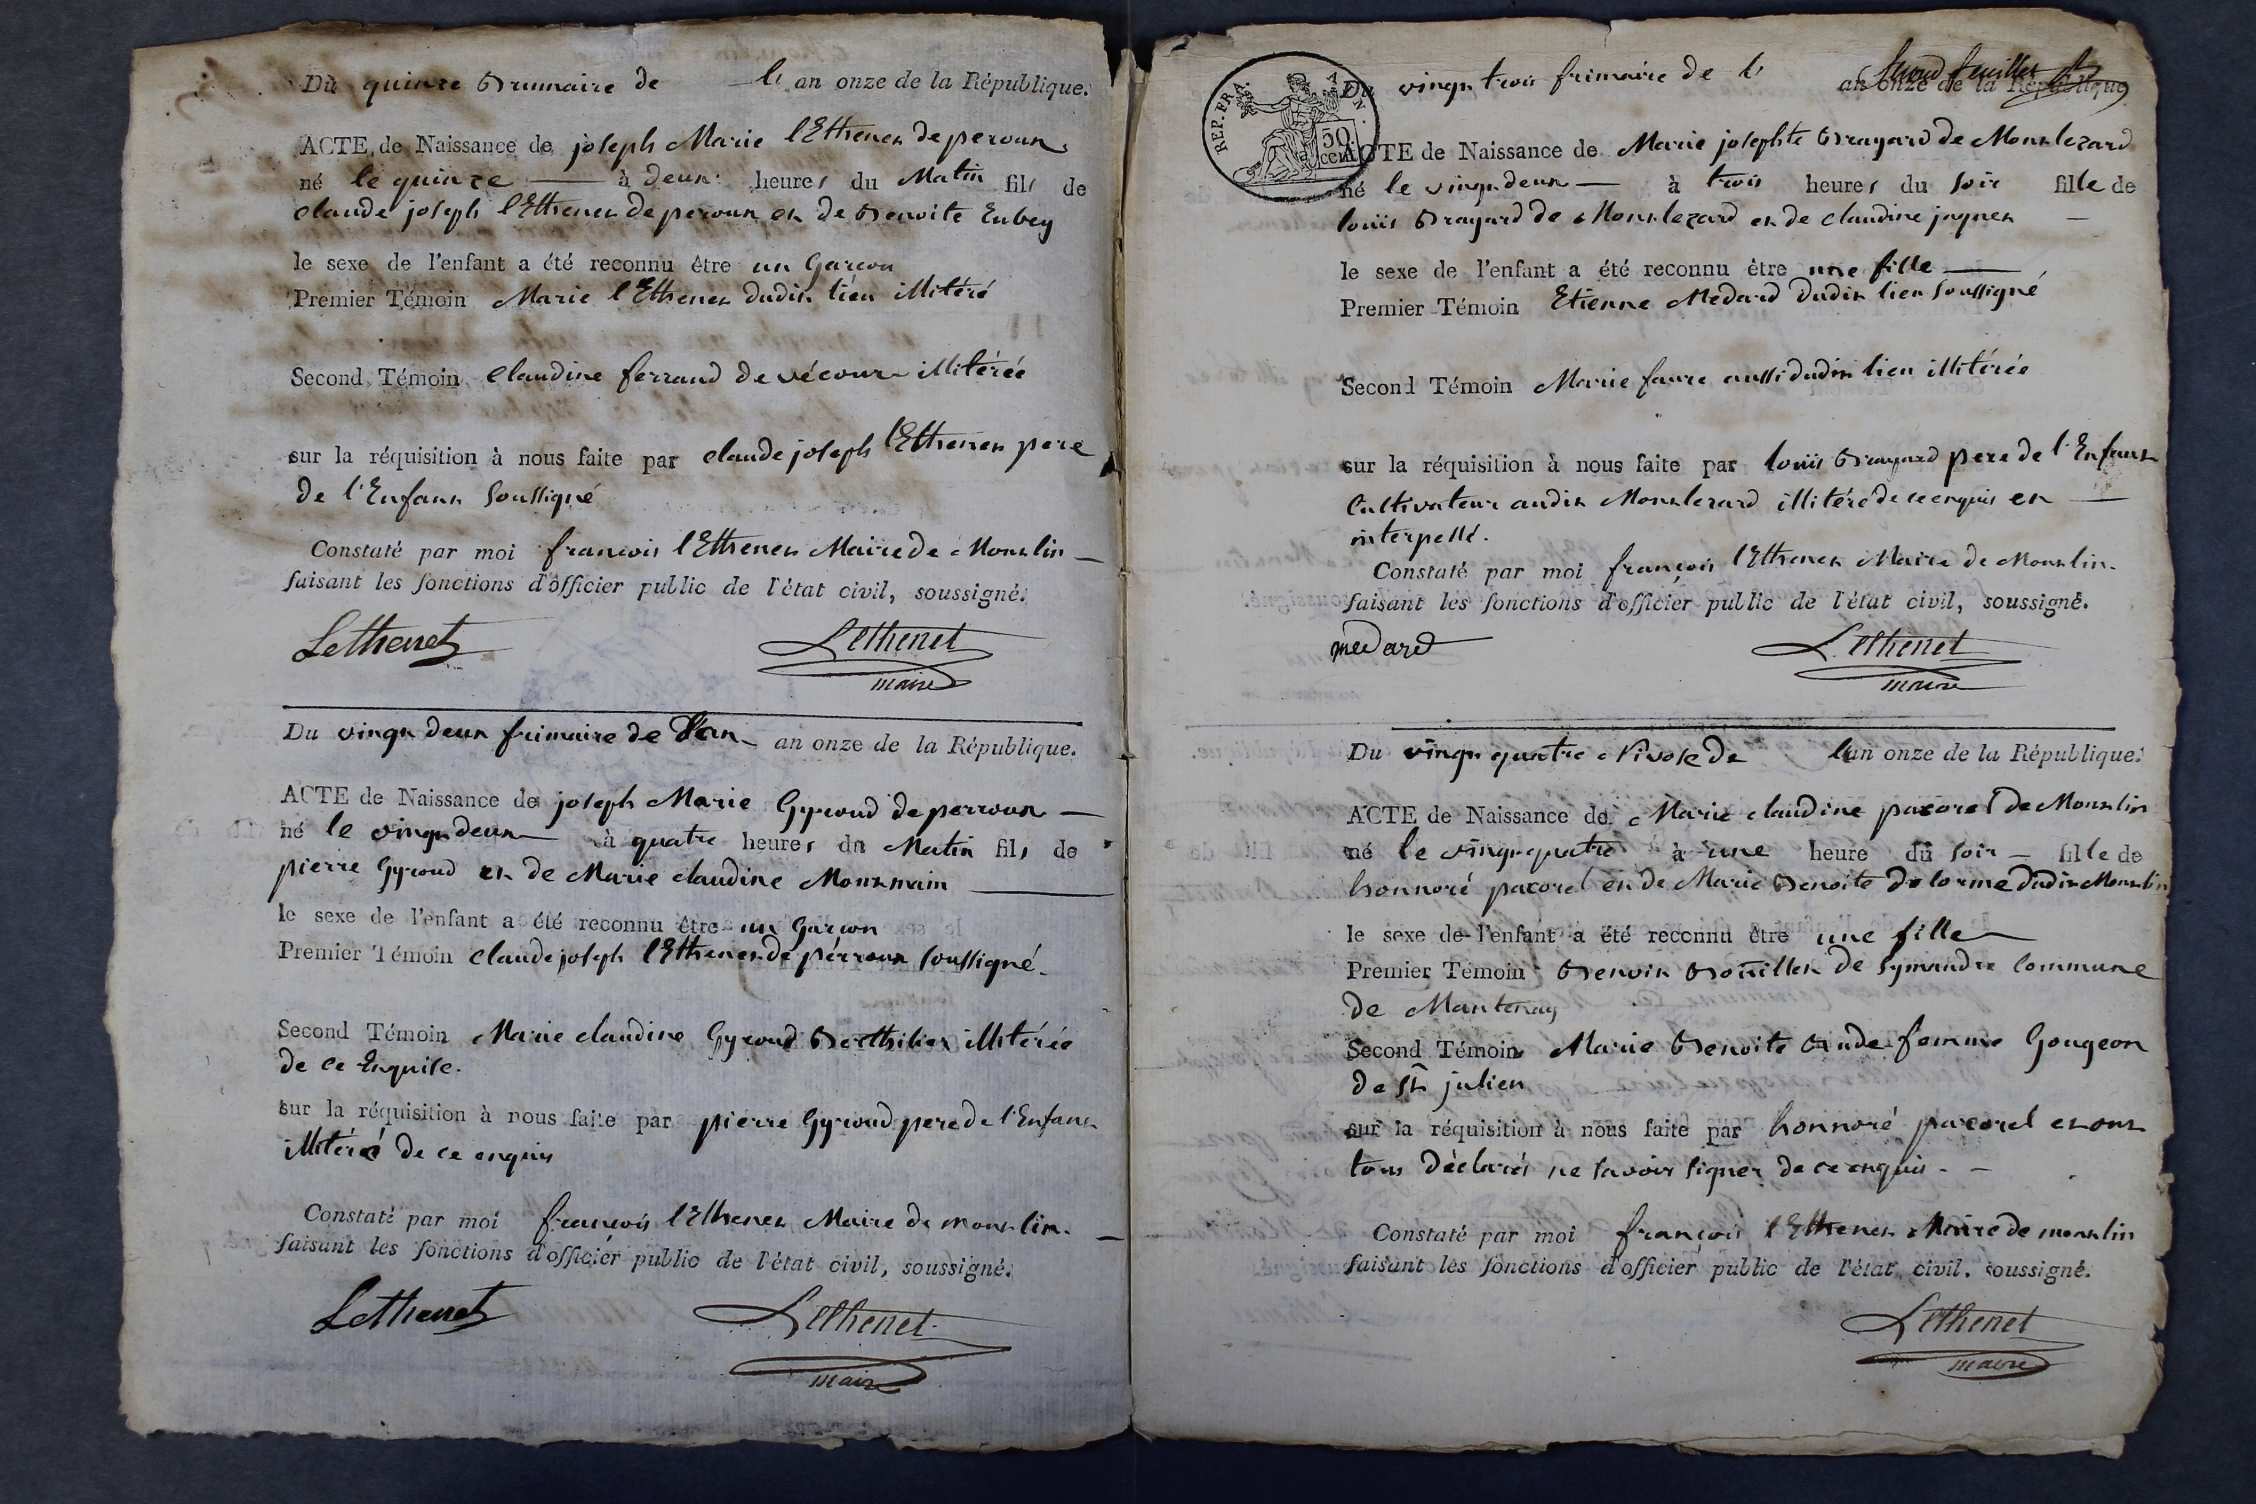 Du quinze Brumaire de l' an onze de la République.
ACTE de Naissance de joseph Marie l'Ethenet de peroux
né le quinze à deux heures du Matin fils de
claude joseph l'Ethenet de peroux et de Benoite Eubey
le sexe de l'enfant a été reconnu être un Garcon
Premier Témoin Marie l'Ethenet dudit lieu illitéré
Second Témoin claudine ferrand de vécours illitérée
sur la réquisition à nous faite par claude joseph l'Ethenet pere
de l'Enfant soussigné
Constaté par moi francois l'Ethenet Maire de Montlin
faisant les fonctions d'officier public de l'état civil, soussigné.
Lethenet Lethenet
maire
Du vingt deux frimaire de l'an an onze de la République.
ACTE de Naissance de joseph Marie Gyroud de perroux
né le vingt deux à quatre heures du Matin fils de
pierre Gyroud et de Marie claudine Montmain
le sexe de l'enfant a été reconnu être un Garcon
Premier Témoin claude joseph l'Ethenet de pérroux soussigné.
Second Témoin Marie claudine Gyroud Berthilier illitérée
de ce Enquise.
sur la réquisition à nous faite par pierre Gyroud pere de l'Enfant
illitéré de ce enquis
Constaté par moi francois l'Ethenet Maire de montlin.
faisant les fonctions d'officier public de l'état civil, soussigné.
Lethenet Lethenet
maire
REP. FRA.
50
cent
second feuillet
Du vingt trois frimaire de l' an onze de la République
ACTE de Naissance de Marie josephte Brayard de Montlezard
né le vingt deux à trois heures du soir fille de
louis Brayard de Montlezard et de claudine joynet
le sexe de l'enfant a été reconnu être une fille
Premier Témoin Etienne Medard dudit lieu soussigné
Second Témoin Marie faure aussi dudit lieu illitérée
sur la réquisition à nous faite par louis Brayard pere de l'Enfant
Cultivateur audit Montlezard illitéré de ce enquis et
interpellé.
Constaté par moi françois l'Ethenet Maire de Montlin.
faisant les fonctions d'officier public de l'état civil, soussigné.
medard Lethenet
maire
Du vingt quatre Nivose de l'an onze de la République.
ACTE de Naissance de Marie claudine pacorel de Montlin
né le vingt quatre à une heure du soir fille de
honnoré pacorel et de Marie Benoite delorme dudit Montlin
le sexe de l'enfant a été reconnu être une fille
Premier Témoin Benoit Boüillet de Symandre Commune
de Mantenay
Second Témoin Marie Benoite Bude femme Gougeon
de St julien
sur la réquisition à nous faite par honnoré pacorel et ont
tous déclarés ne savoir signer de ce enquis.
Constaté par moi françois l'Ethenet Maire de montlin
faisant les fonctions d'officier public de l'état civil, soussigné.
Lethenet
maire